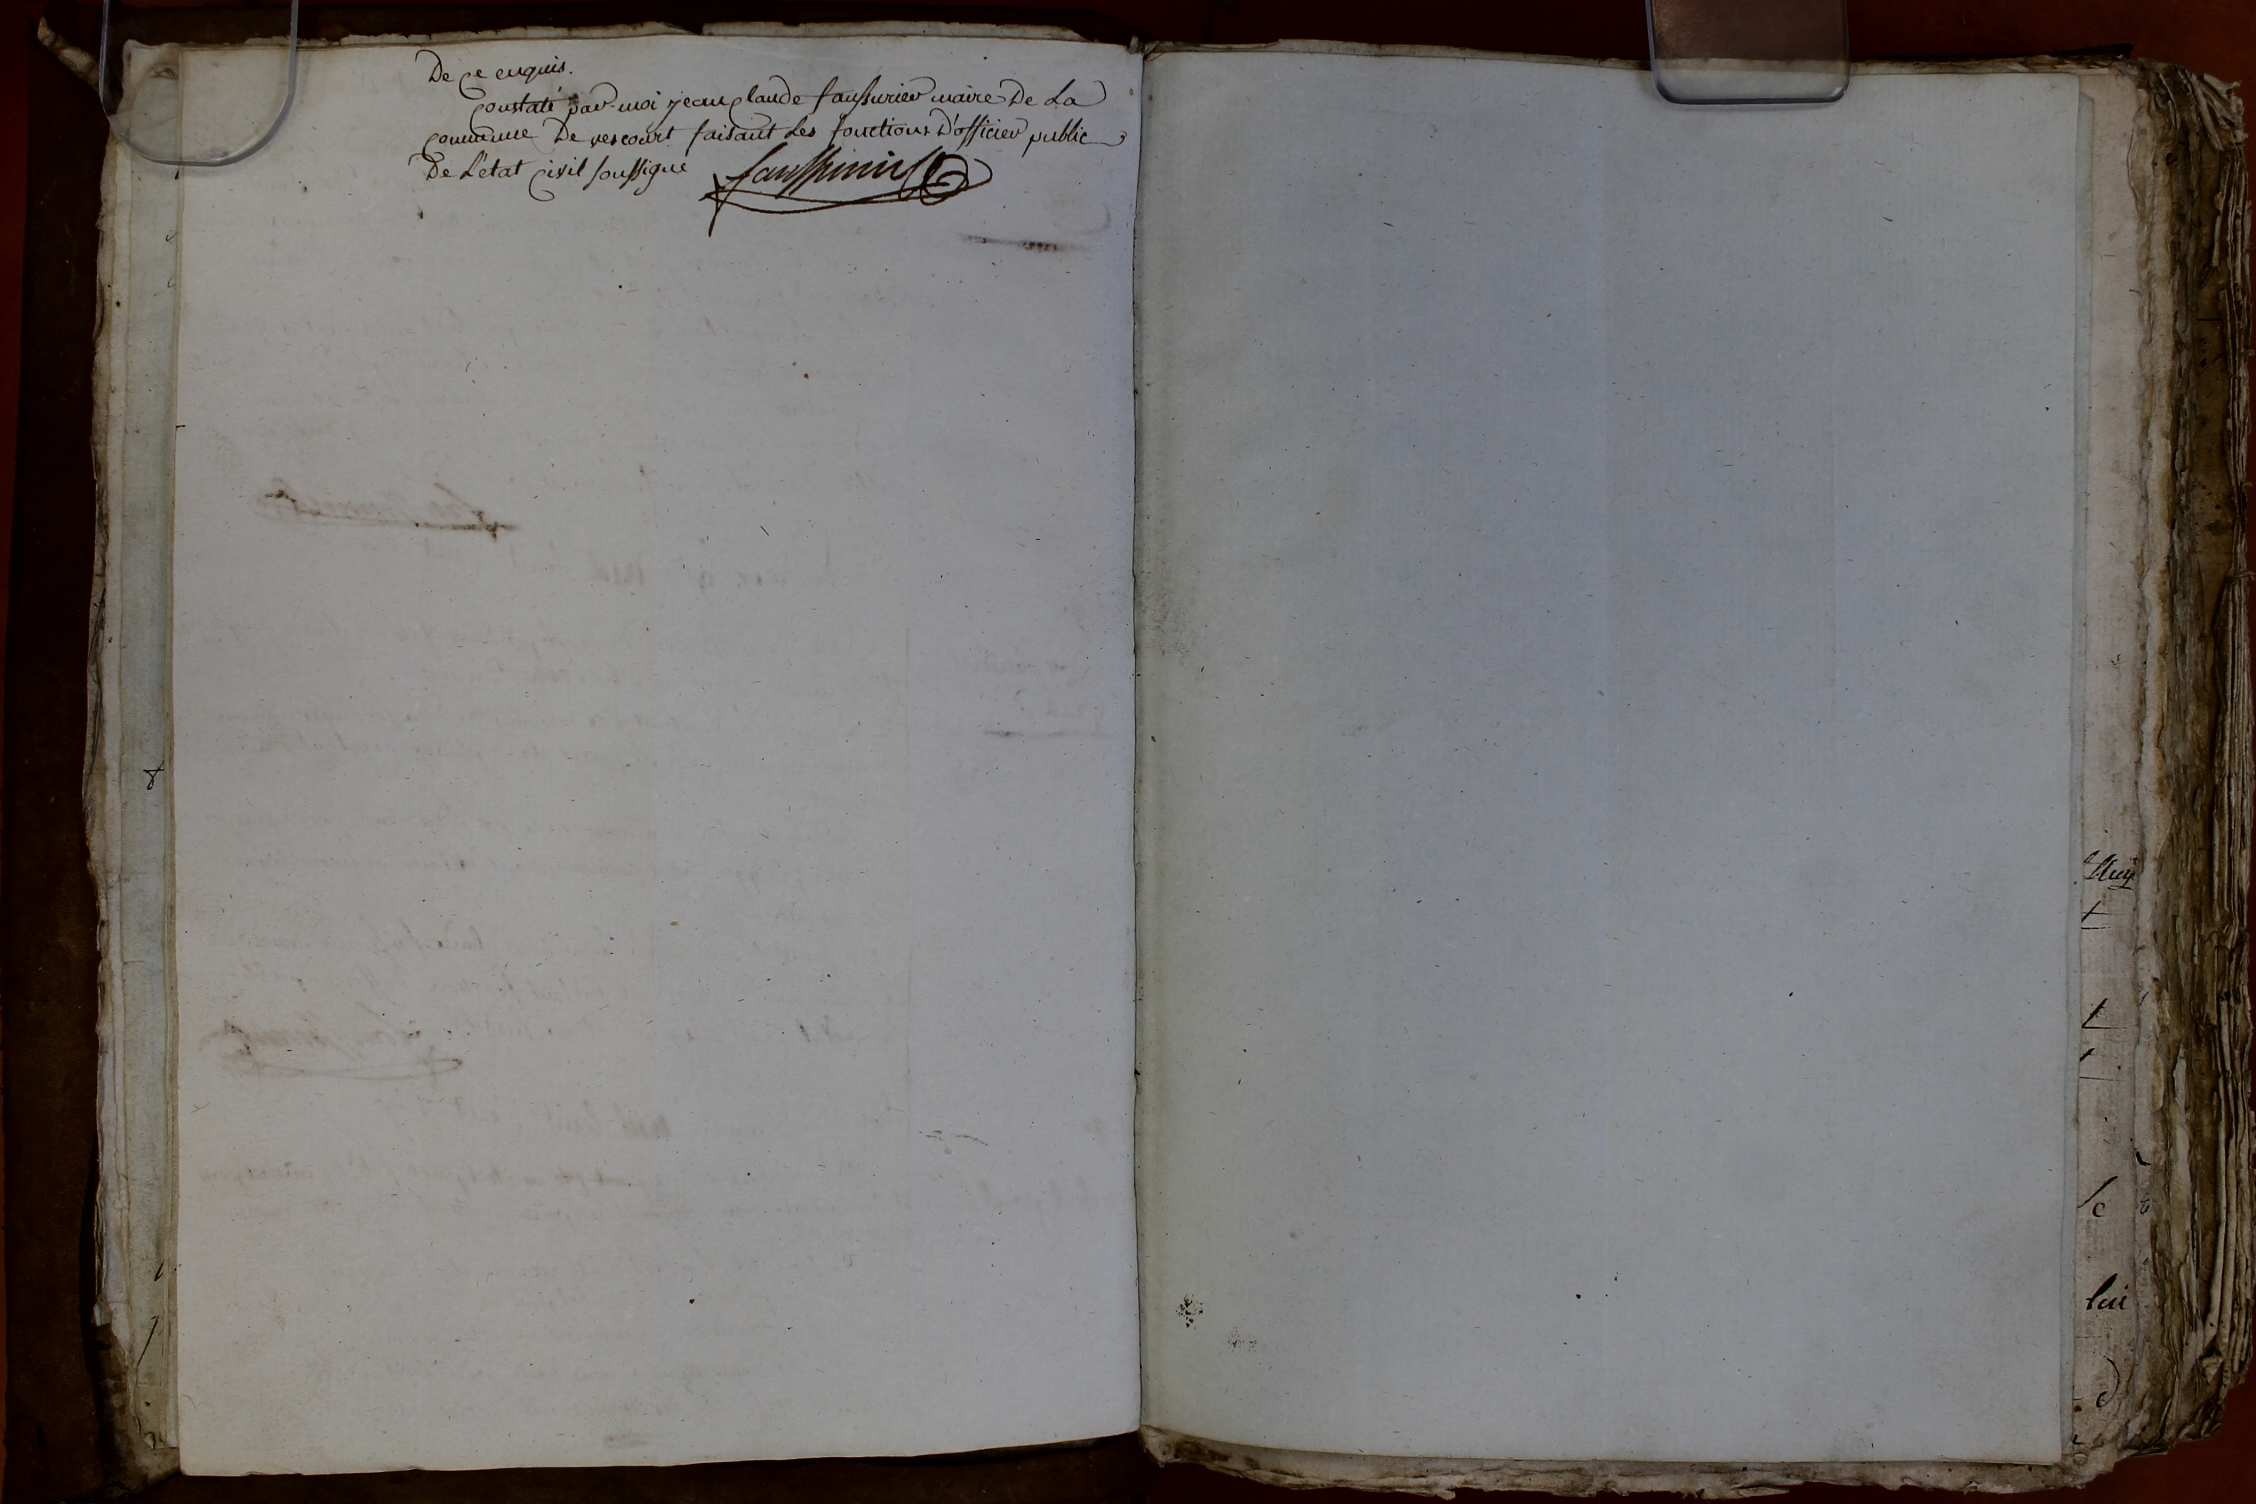 De ce enquis.
Constaté par moi jean claude saussurier maire De La
Commune De recourt faisant Les fonctions D'officier public
De L'état Civil soussigné